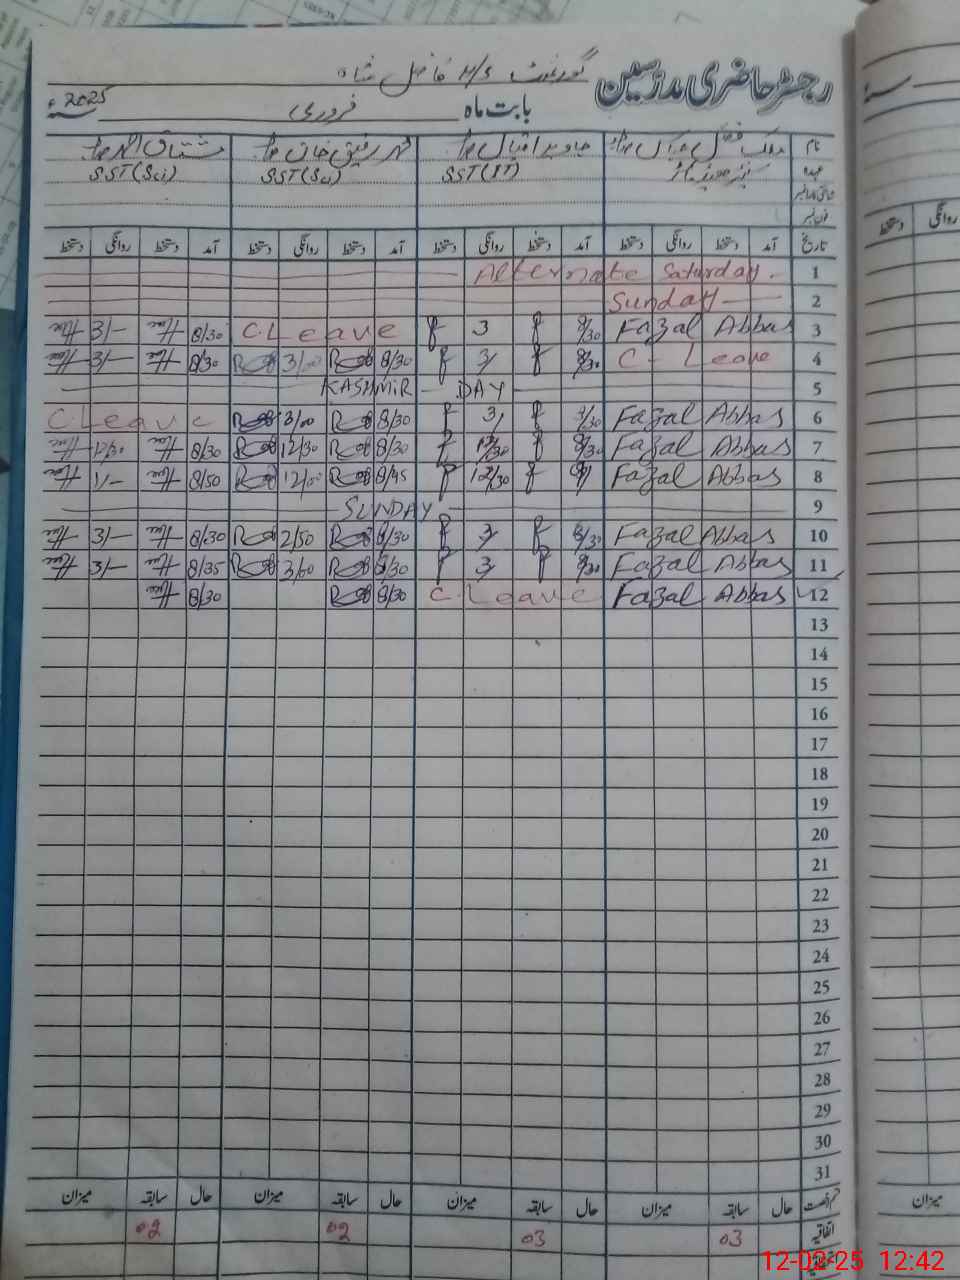 رجسٹر حاضری مدرسین گورنمنٹ M/S فاضل شاہ
بابت ماہ فروری 2025ء
نام ملک فضل عباس جاوید اقبال محمد رفیق خان مشتاق احمد
عہدہ SST(IT) SST(Sci) SST(Sci)
شناختی کارڈ نمبر
فون نمبر
تاریخ آمد دستخط روانگی دستخط آمد دستخط روانگی دستخط آمد دستخط روانگی دستخط آمد دستخط روانگی دستخط
1 Alternate Saturday.
2 Sunday
3 Fazal Abbas 8/30 3 C. Leave 8/30 3/-
4 C - Leave 8/30 3/ 8/30 3/00 8/30 3/-
5 KASHMIR DAY
6 Fazal Abbas 8/30 3/ 8/30 3/00 C Leave
7 Fazal Abbas 8/30 12/30 8/30 12/30 8/30 12/30
8 Fazal Abbas 12/30 8/45 12/00 8/50 1/-
9 SUNDAY
10 Fazal Abbas 8/30 3/ 8/30 2/50 8/30 3/-
11 Fazal Abbas 8/30 3/ 8/30 3/00 8/35 3/-
12 Fazal Abbas C. Leave 8/30 8/30
13
14
15
16
17
18
19
20
21
22
23
24
25
26
27
28
29
30
31
قسم رخصت حال سابقہ میزان حال سابقہ میزان حال سابقہ میزان حال سابقہ میزان
اتفاقیہ 03 03 02 02
12-02-25 12:42